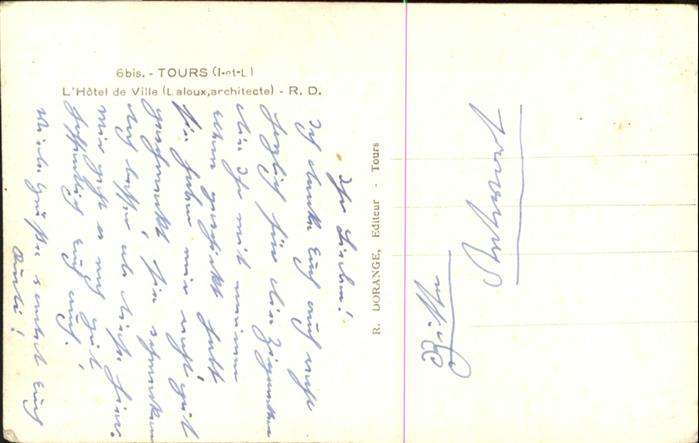 6bis. - TOURS (I-et-L)
L'Hôtel de Ville (Laloux, architecte) - R. D.
R. DORANGE, Editeur - Tours
Ihr Lieben!
Ich danke Euch auch recht
herzlich für die Zigaretten
die Ihr mit
geschickt habt
sie haben mir recht gut
geschmeckt, sie schmecken
doch besser als diese hier.
mir geht es noch gut
hoffentlich Euch auch!
Viele Grüße sendet Euch
Bitte
Antwort